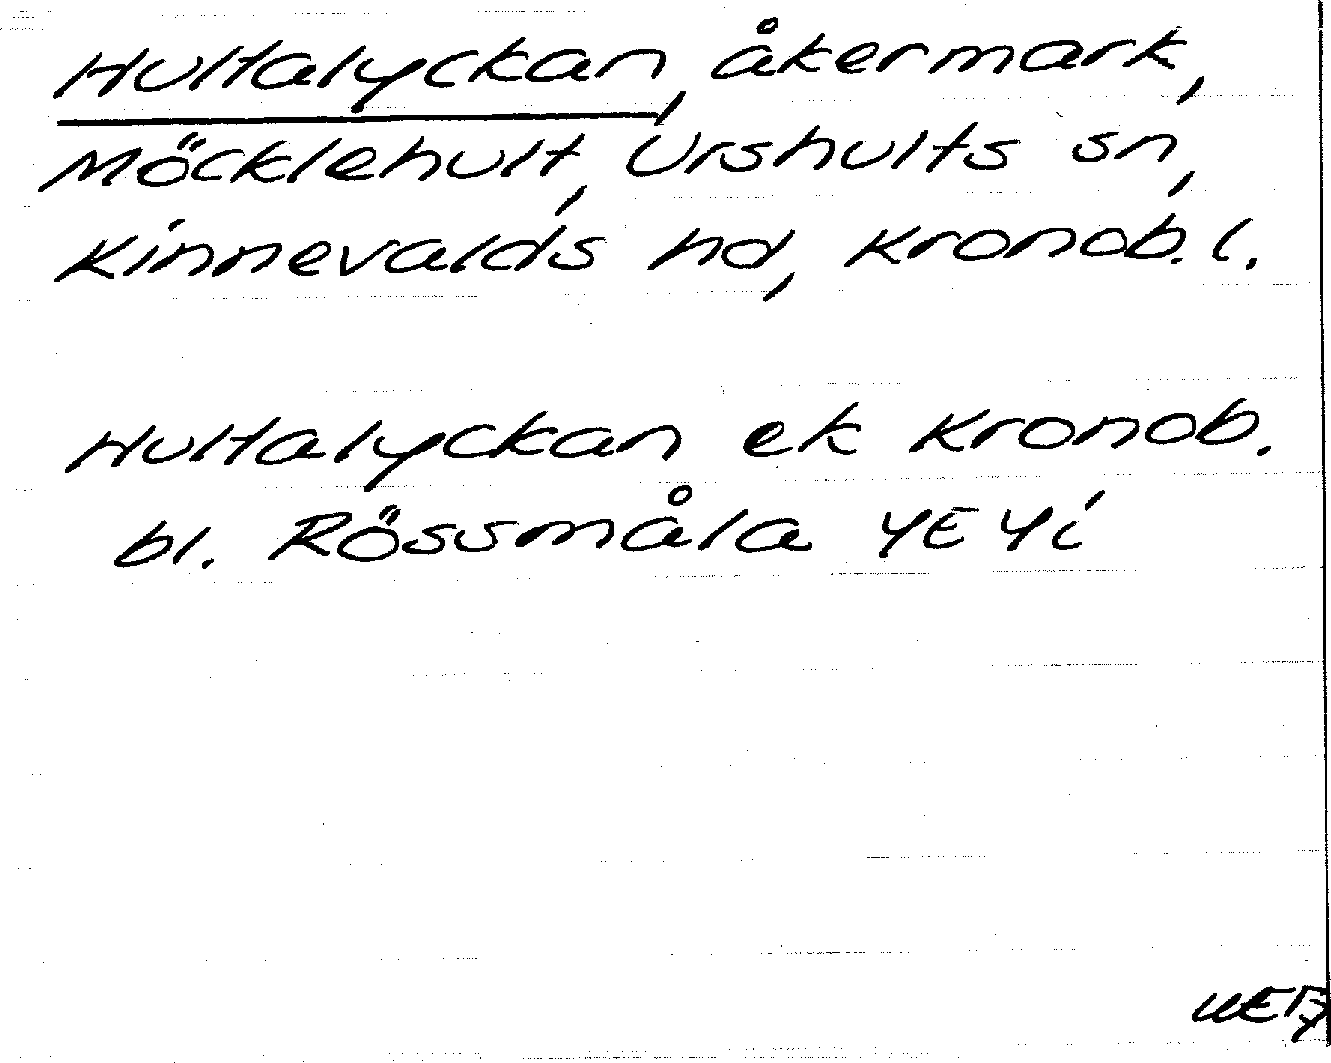 Hultalyckan, åkermark,
Möcklehult, Urshults sn,
Kinnevalds hd, Kronob. l.
Hultalyckan ek Kronob.
bl. Rössmåla 4E4i